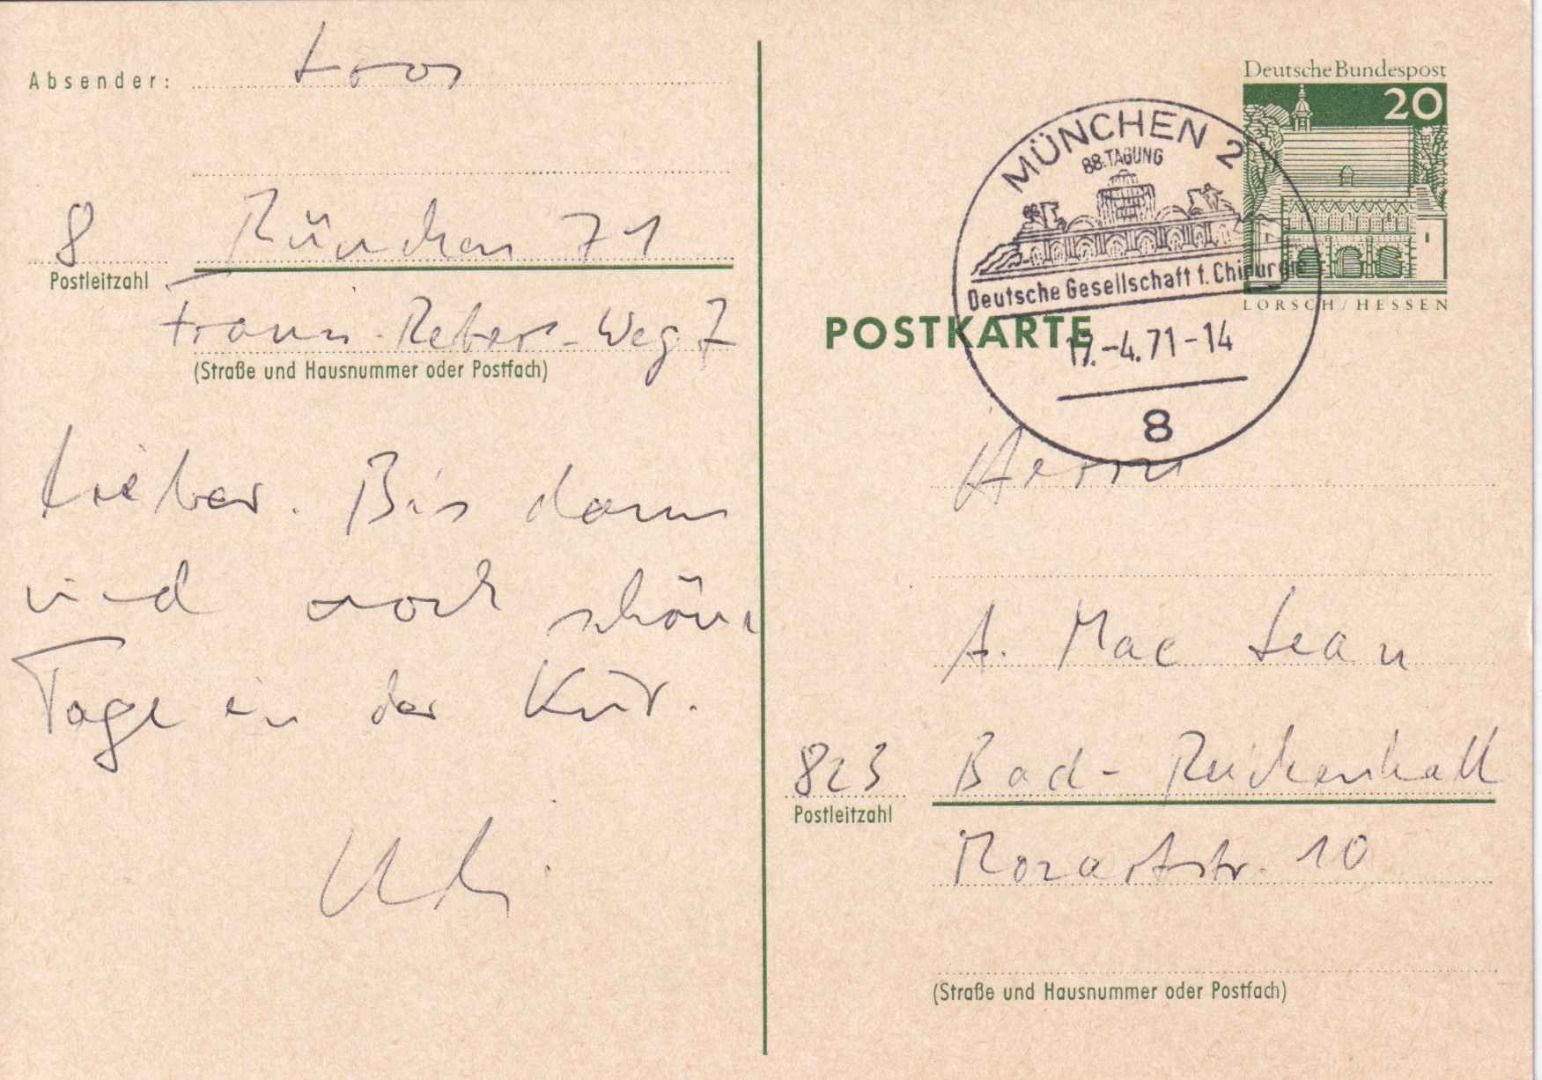 Absender: Loos
8 München 71
Postleitzahl
Franz-Reber-Weg 7
(Straße und Hausnummer oder Postfach)
Lieber. Bis dann
und noch schöne
Tage in der Kur.
Uli
Deutsche Bundespost
20
LORSCH / HESSEN
MÜNCHEN 2
88. TAGUNG
Deutsche Gesellschaft f. Chirurgie
17.-4.71-14
8
POSTKARTE
Herrn
A. Mac Lean
823 Bad-Reichenhall
Postleitzahl
Mozartstr. 10
(Straße und Hausnummer oder Postfach)